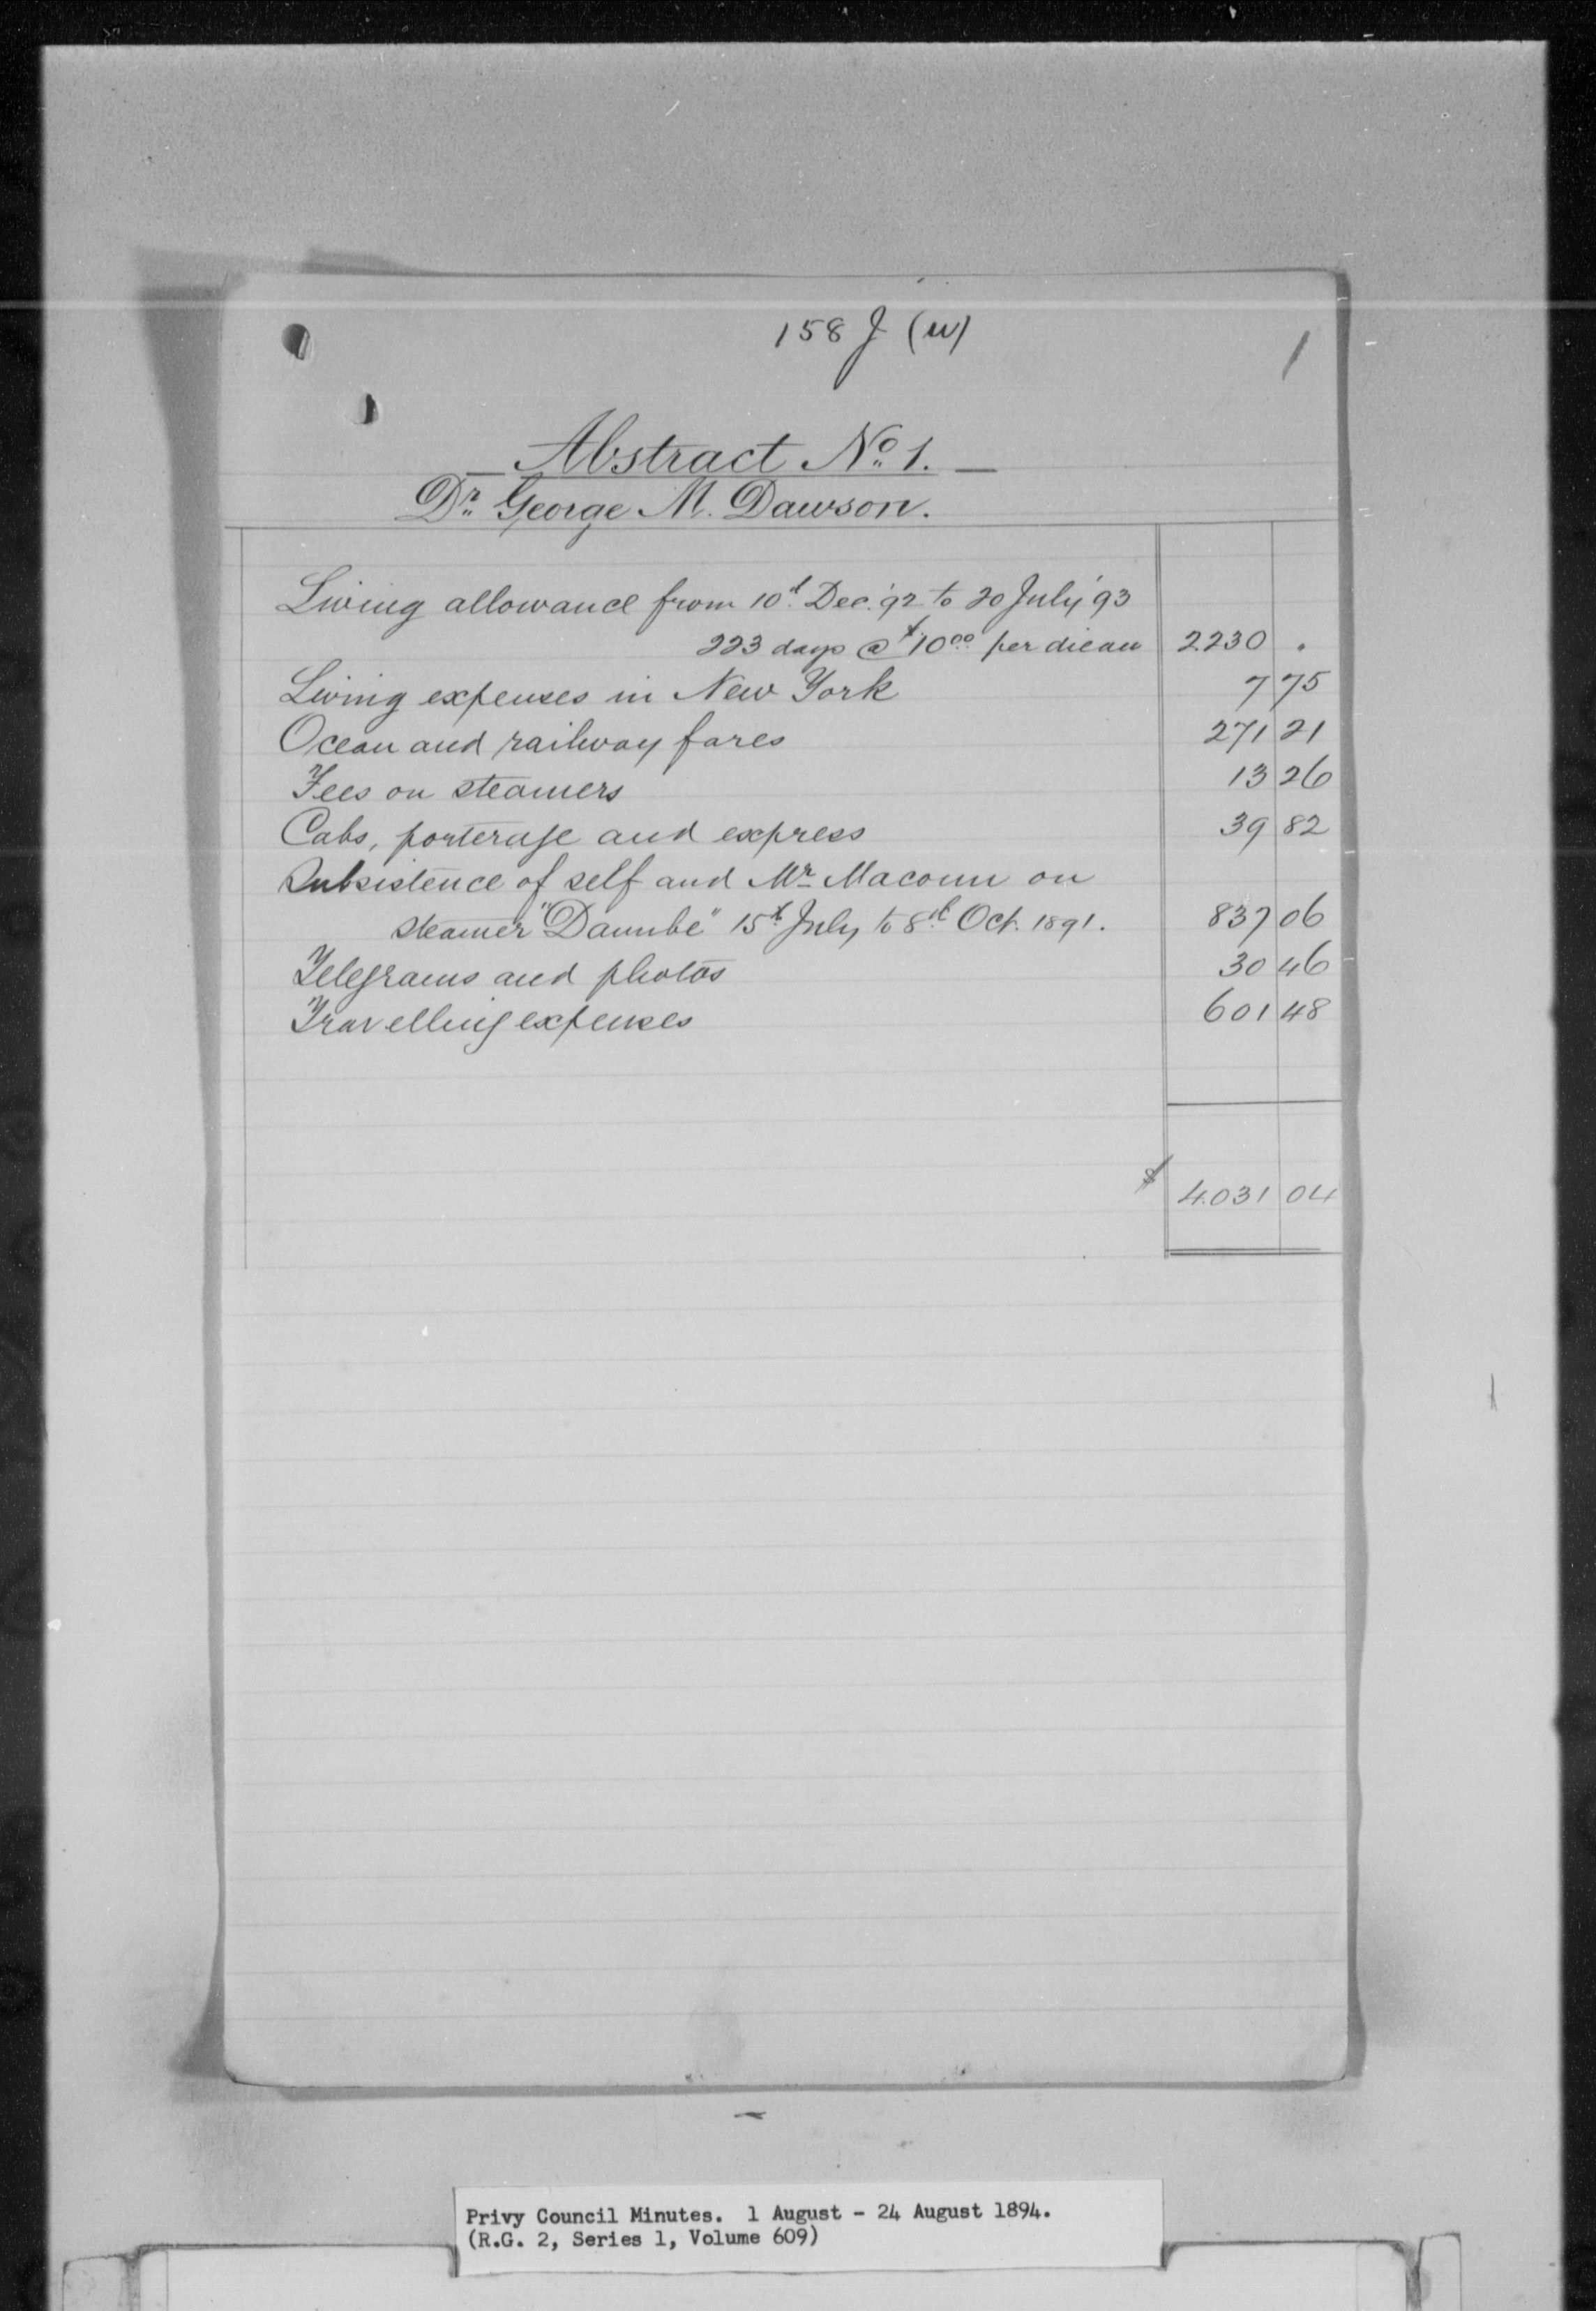 158 J (w)
1
Abstract No. 1.
Dr. George M. Dawson.
Living allowance from 10th Dec. '92 to 20 July '93
223 days @ $10.00 per diem 2.230 "
Living expenses in New York 7 75
Ocean and railway fares 271 21
Fees on steamers 13 26
Cabs, porterage and express 39 82
Subsistence of self and Mr Macoun on
steamer "Danube" 15th July to 8th Oct. 1891. 837 06
Telegrams and photos 30 46
Travelling expenses 601 48
$ 4.031 04
Privy Council Minutes. 1 August - 24 August 1894.
(R.G. 2, Series 1, Volume 609)